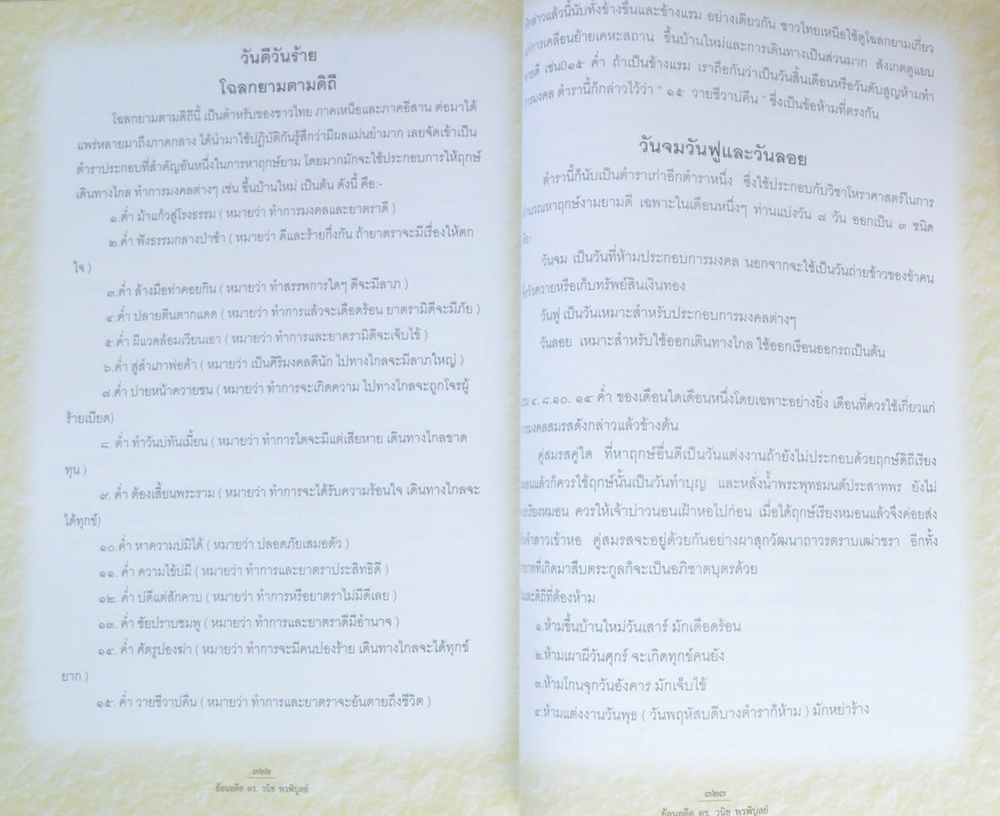 วันดีวันร้าย
โฉลกยามตามดิถี
โฉลกยามตามดิถีนี้ เป็นตำหรับของชาวไทย ภาคเหนือและภาคอีสาน ต่อมาได้
แพร่หลายมาถึงภาคกลาง ได้นำมาใช้ปฏิบัติกันรู้สึกว่ามีผลแม่นยำมาก เลยจัดเข้าเป็น
ตำราประกอบที่สำคัญอันหนึ่งในการหาฤกษ์ยาม โดยมากมักจะใช้ประกอบการให้ฤกษ์
เดินทางไกล ทำการมงคลต่างๆ เช่น ขึ้นบ้านใหม่ เป็นต้น ดังนี้ คือ:-
๑.ค่ำ ม้าแก้วสู่โรงธรรม ( หมายว่า ทำการมงคลและยาตราดี )
๒.ค่ำ ฟังธรรมกลางป่าช้า ( หมายว่า ดีและร้ายกึ่งกัน ถ้ายาตราจะมีเรื่องให้ตก
ใจ )
๓.ค่ำ ล้างมือท่าคอยกิน ( หมายว่า ทำสรรพการใดๆ ดีจะมีลาภ )
๔.ค่ำ ปลายตีนตากแดด ( หมายว่า ทำการแล้วจะเดือดร้อน ยาตรามิดีจะมีภัย )
๕.ค่ำ ผีแวดล้อมเวียนเฮา ( หมายว่า ทำการและยาตรามิดีจะเจ็บไข้ )
๖.ค่ำ สู่สำเภาพ่อค้า ( หมายว่า เป็นศิริมงคลดีนัก ไปทางไกลจะมีลาภใหญ่ )
๗.ค่ำ บ่ายหน้าควายชน ( หมายว่า ทำการจะเกิดความ ไปทางไกลจะถูกโจรผู้
ร้ายเบียด)
๘. ค่ำ ทำวันบ่ทันเมี้ยน ( หมายว่า ทำการใดจะมีแต่เสียหาย เดินทางไกลขาด
ทุน )
๙. ค่ำ ต้องเสี้ยนพระราม ( หมายว่า ทำการจะได้รับความร้อนใจ เดินทางไกลจะ
ได้ทุกข์)
๑๐.ค่ำ หาความบ่มิได้ ( หมายว่า ปลอดภัยเสมอตัว )
๑๑. ค่ำ ความไข้บ่มี ( หมายว่า ทำการและยาตราประสิทธิดี )
๑๒. ค่ำ บ่ดีแต่สักคาบ ( หมายว่า ทำการหรือยาตราไม่มีดีเลย )
๑๓. ค่ำ ชัยปราบชมพู ( หมายว่า ทำการและยาตราดีมีอำนาจ )
๑๔. ค่ำ ศัตรูปองฆ่า ( หมายว่า ทำการจะมีคนปองร้าย เดินทางไกลจะได้ทุกข์
ยาก )
๑๕. ค่ำ วายชีวาบ่คืน ( หมายว่า ทำการและยาตราจะอันตายถึงชีวิต )
๓๒๒
ย้อนอดีต ดร. วนิช พรพิบูลย์
กล่าวแล้วนี้นับทั้งข้างขึ้นและข้างแรม อย่างเดียวกัน ชาวไทยเหนือใช้ดูโฉลกยามเกี่ยว
การเคลื่อนย้ายเคหะสถาน ขึ้นบ้านใหม่และการเดินทางเป็นส่วนมาก สังเกตดูแยบ
คายดี เช่น๑๕ ค่ำ ถ้าเป็นข้างแรม เราถือกันว่าเป็นวันสิ้นเดือนหรือวันดับสูญห้ามทำ
การมงคล ตำรานี้ก็กล่าวไว้ว่า " ๑๕ วายชีวาบ่คืน " ซึ่งเป็นข้อห้ามที่ตรงกัน
วันจมวันฟูและวันลอย
ตำรานี้ก็นับเป็นตำราเก่าอีกตำราหนึ่ง ซึ่งใช้ประกอบกับวิชาโหราศาสตร์ในการ
คำนวณหาฤกษ์งามยามดี เฉพาะในเดือนหนึ่งๆ ท่านแบ่งวัน ๗ วัน ออกเป็น ๓ ชนิด
คือ:-
วันจม เป็นวันที่ห้ามประกอบการมงคล นอกจากจะใช้เป็นวันถ่ายข้าวของข้าคน
วัวควายหรือเก็บทรัพย์สินเงินทอง
วันฟู เป็นวันเหมาะสำหรับประกอบการมงคลต่างๆ
วันลอย เหมาะสำหรับใช้ออกเดินทางไกล ใช้ออกเรือนออกรถเป็นต้น
๔. ๘.๑๐. ๑๔ ค่ำ ของเดือนใดเดือนหนึ่งโดยเฉพาะอย่างยิ่ง เดือนที่ควรใช้เกี่ยวแก่
การมงคลสมรสดังกล่าวแล้วข้างต้น
คู่สมรสคู่ใด ที่หาฤกษ์อื่นดีเป็นวันแต่งงานถ้ายังไม่ประกอบด้วยฤกษ์ดิถีเรียง
หมอนแล้วก็ควรใช้ฤกษ์นั้นเป็นวันทำบุญ และหลั่งน้ำพระพุทธมนต์ประสาทพร ยังไม่
ควรเรียงหมอน ควรให้เจ้าบ่าวนอนเฝ้าหอไปก่อน เมื่อได้ฤกษ์เรียงหมอนแล้วจึงค่อยส่ง
ตัวเจ้าสาวเข้าหอ คู่สมรสจะอยู่ด้วยกันอย่างผาสุกวัฒนาถาวรตราบเฒ่าชรา อีกทั้ง
ทายาทที่เกิดมาสืบตระกูลก็จะเป็นอภิชาตบุตรด้วย
วันและดิถีที่ต้องห้าม
๑.ห้ามขึ้นบ้านใหม่วันเสาร์ มักเดือดร้อน
๒.ห้ามเผาผีวันศุกร์ จะเกิดทุกข์คนยัง
๓.ห้ามโกนจุกวันอังคาร มักเจ็บไข้
๔.ห้ามแต่งงานวันพุธ ( วันพฤหัสบดีบางตำราก็ห้าม ) มักหย่าร้าง
๓๒๓
ย้อนอดีต ดร. วนิช พรพิบูลย์